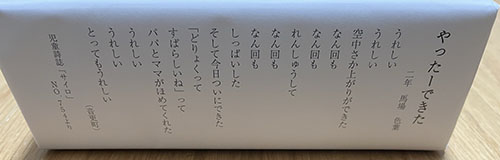 やったーできた
二年 馬場 色葉
うれしい
うれしい
空中さか上がりができた
なん回も
なん回も
れんしゅうして
なん回も
しっぱいした
そして今日ついにできた
「どりょくって
すばらしいね」って
パパとママがほめてくれた
うれしい
うれしい
とってもうれしい
(音更町)
児童詩誌「サイロ」
NO.754より